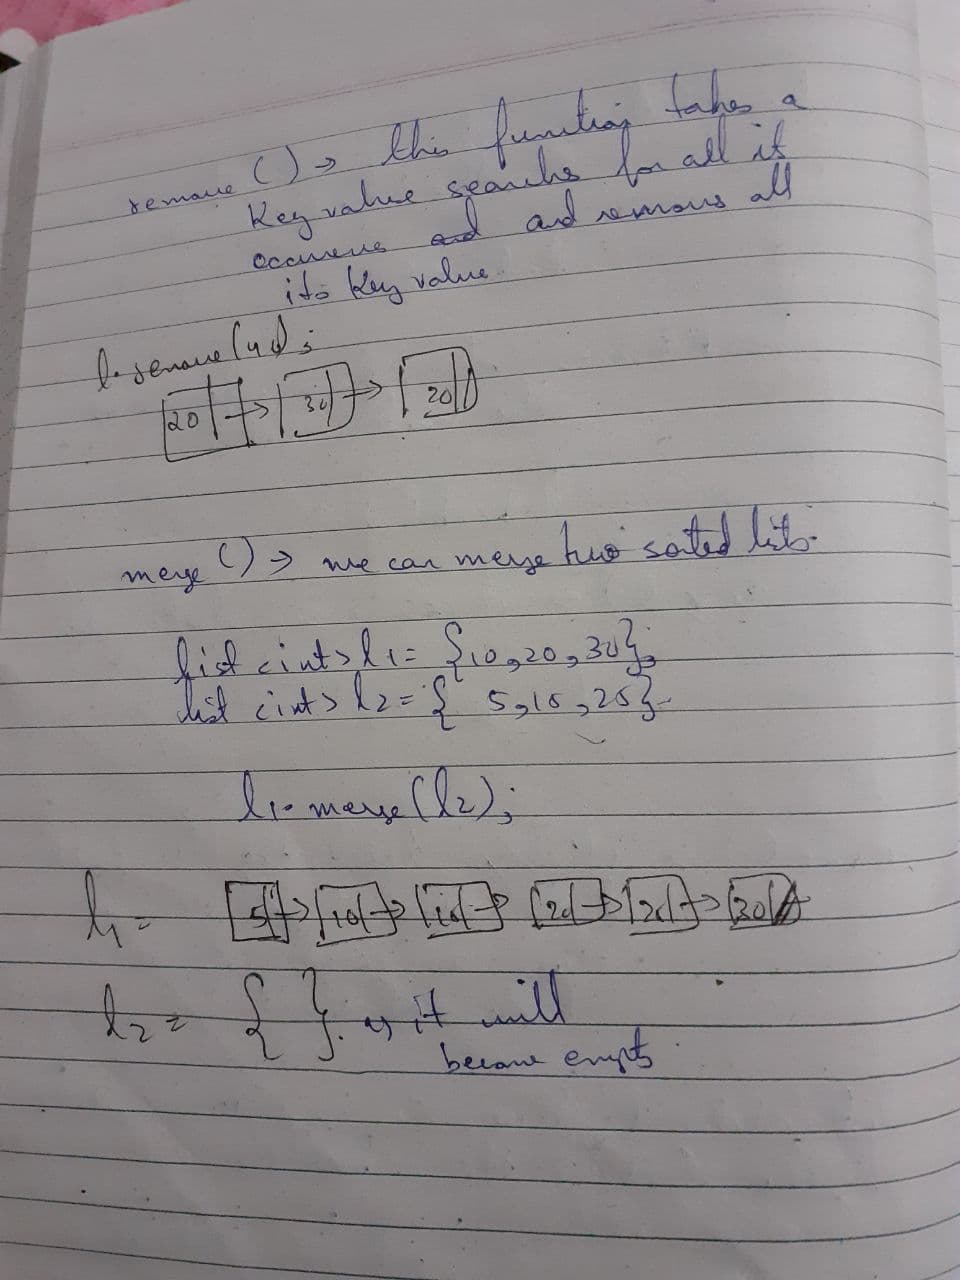 remove () → this function takes a
Key value searches for all it
occurrens and and removes all
its Key value
l.remove(40);
20 → 30 → 20
merge () → we can merge two sorted lists.
list <int> l1 = {10, 20, 30};
list <int> l2 = { 5, 15, 25}
l1.merge(l2);
l1 = 5 → 10 → → 20 → → 30
l2 = { }. it will
become empty.